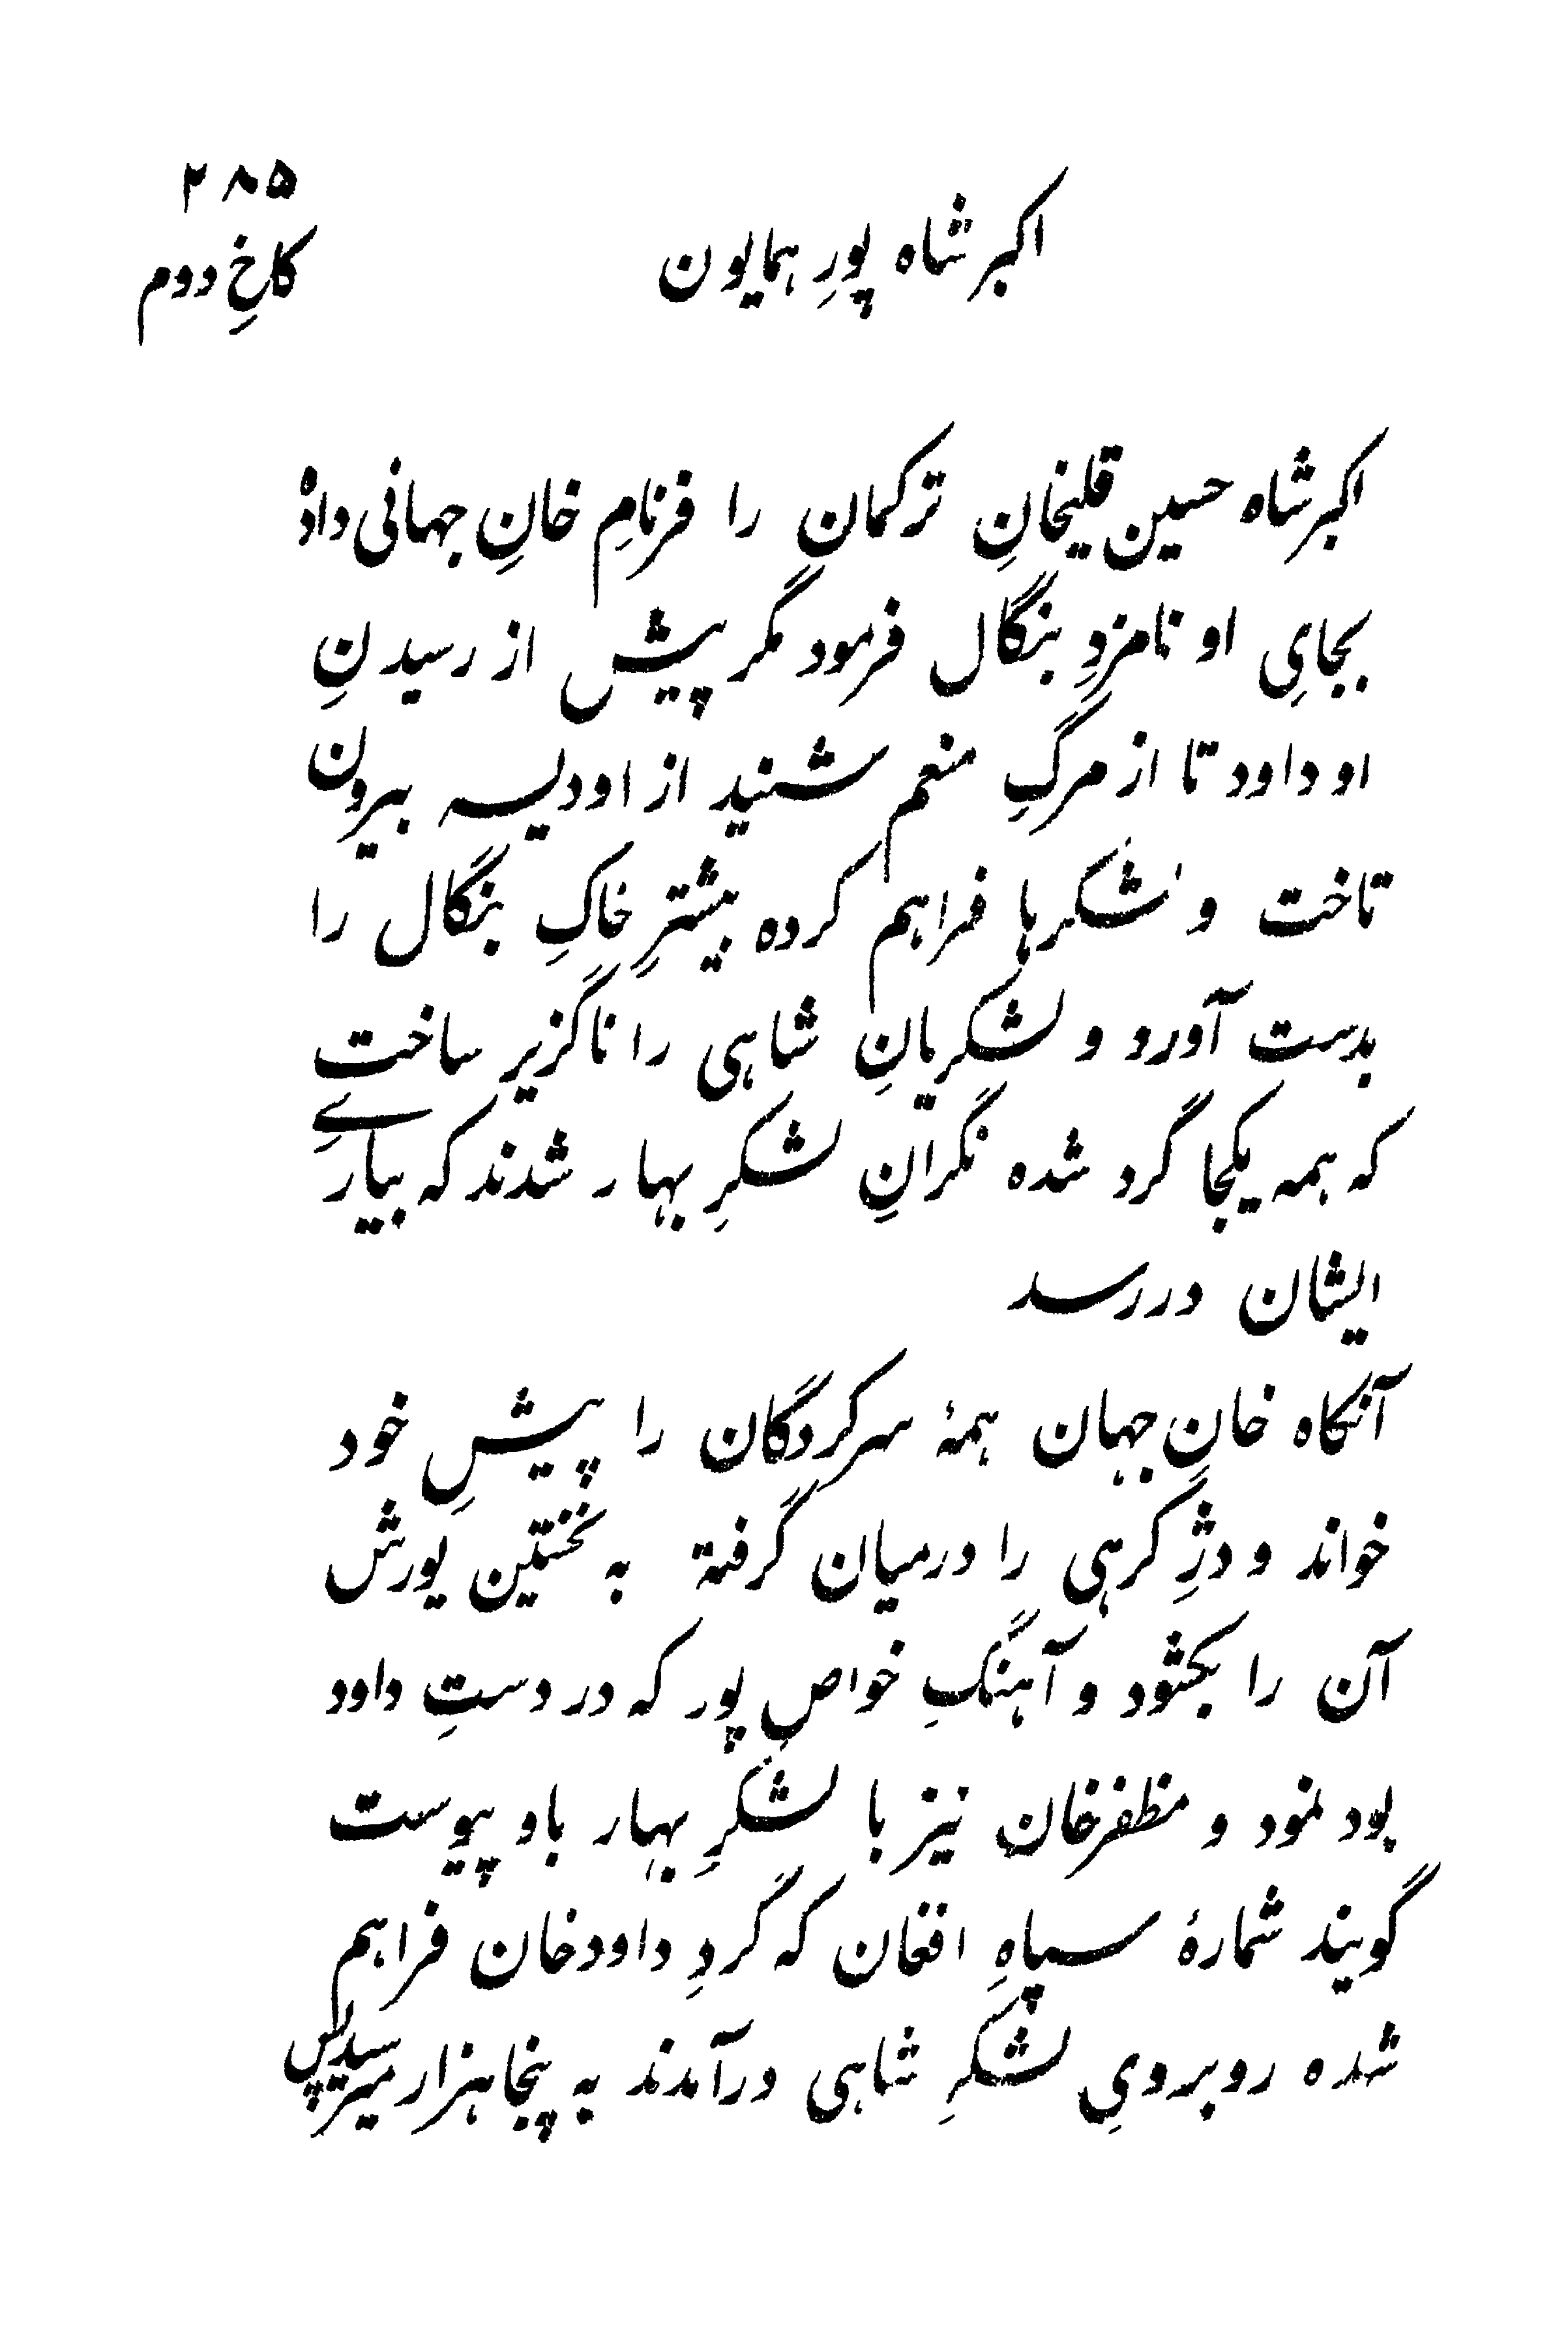 ۲۸۵
اکبر شاه پورِ همایون
کاخِ دوم
اکبر شاه حسین قلیخانِ ترکمان را فرنامِ خانِ جهانی داده
بجایِ او نامزدِ بنگال فرمود مگر پیش از رسیدنِ
او داود تا از مرگِ منعم شنید از اودیسه بیرون
تاخت و لشکرها فراهم کرده بیشترِ خاکِ بنگال را
بدست آورد و لشکریانِ شاهی را ناگزیر ساخت
که همه یکجا گرد شده نگرانِ لشکرِ بهار شدند که بیاریِ
ایشان در رسد
آنگاه خانِ جهان همهٔ سرکردگان را پیشِ خود
خواند و دژِ کرهی را درمیان گرفته به نخستین یورش
آن را بکشود و آهنگِ خواص پور که در دستِ داود
بود نمود و مظفرخان نیز با لشکرِ بهار باو پیوست
گویند شمارهٔ سپاهِ افغان که گردِ داودخان فراهم
شده روبرویِ لشکرِ شاهی درآمدند به پنجاهزار میرسید پس